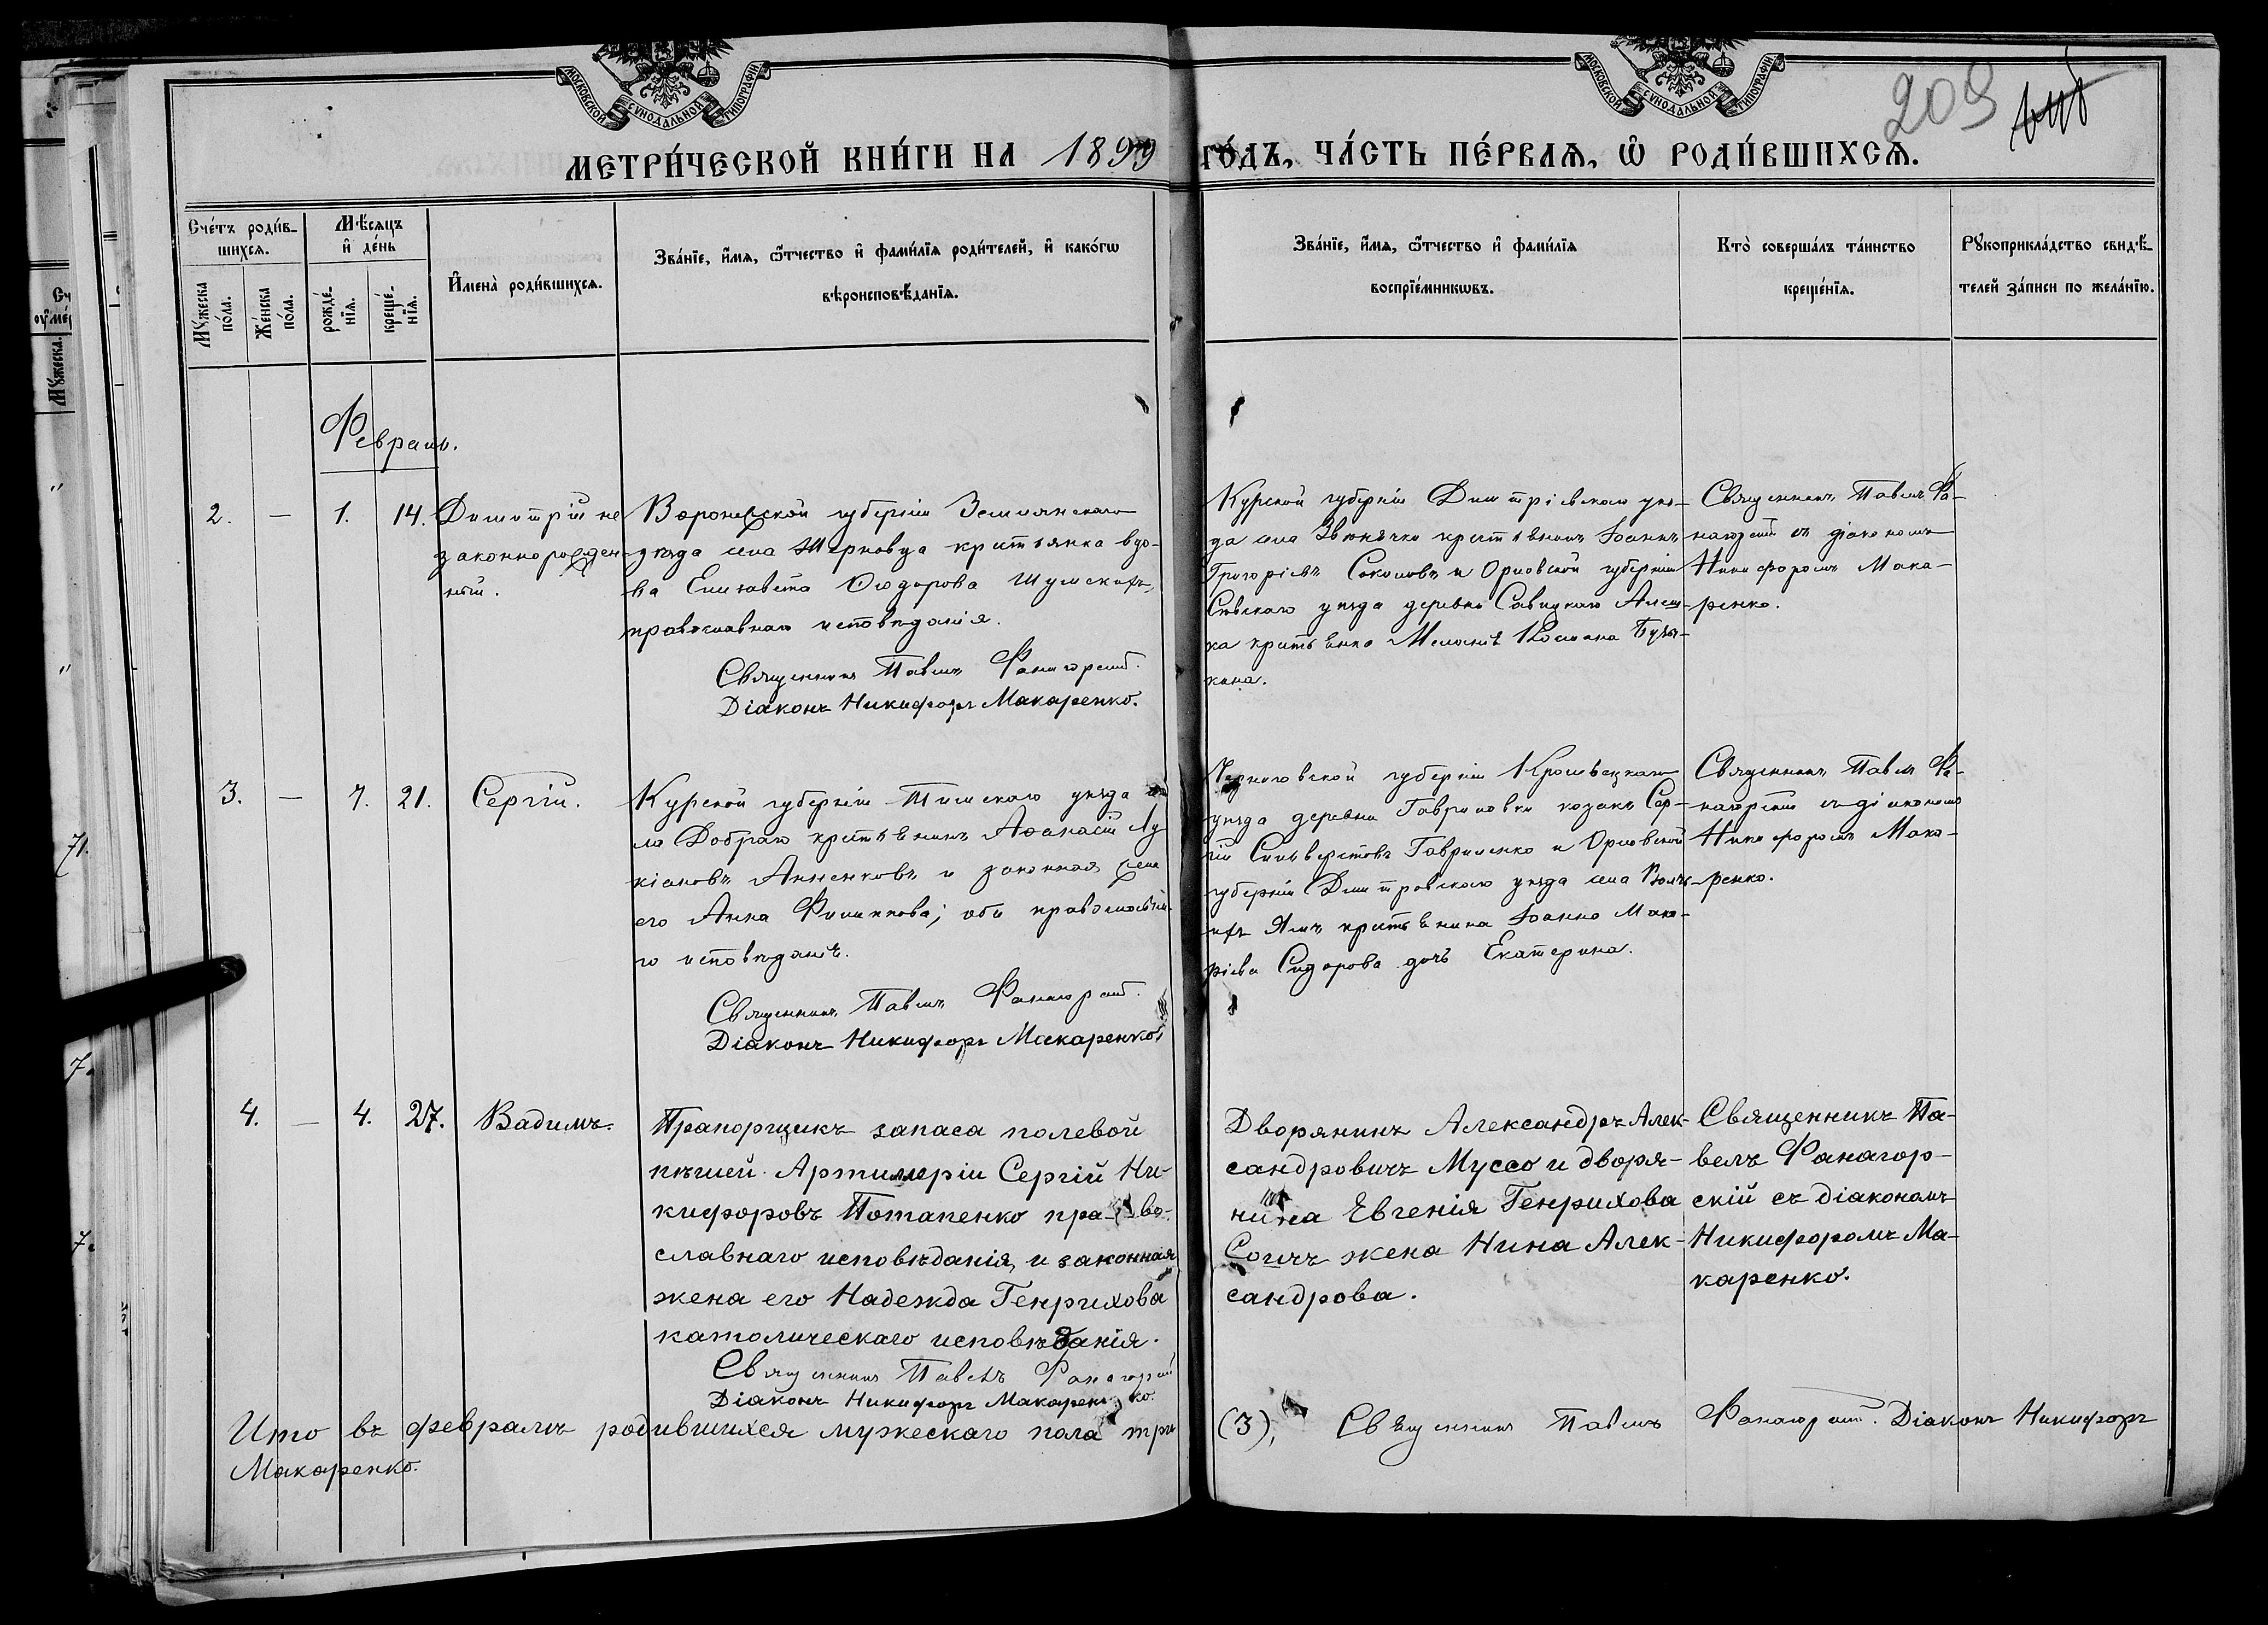 МОСКОВСКОЙ СѴНОДАЛЬНОЙ ТИПОГРАФІИ
МОСКОВСКОЙ СѴНОДАЛЬНОЙ ТИПОГРАФІИ
209
МЕТРИ́ЧЕСКОЙ КНИ́ГИ НА 1899 ГО́ДЪ, ЧА́СТЬ ПЕ́РВАѦ, Ѡ҆ РОДИ́ВШИХСѦ.
Сче́тъ роди́в-
шихся.
Мꙋ́жеска по́ла.
Же́нска по́ла.
Мѣ́сяцъ
и҆ де́нь
рожде́-
нїя.
креще́-
нїя.
И҆мена̀ роди́вшихся.
Зва́нїе, и҆́мѧ, ѻ҆́тчество и҆ фами́лїѧ роди́телей, и҆ како́гѡ
вѣроисповѣ́данїѧ.
Зва́нїе, и҆́мѧ, ѻ҆́тчество и҆ фами́лїѧ
воспрїе́мникѡвъ.
Кто̀ соверша́лъ та́инство
креще́нїѧ.
Рꙋкоприкла́дство свидѣ́-
телей за́писи по жела́нїю.
Февраль.
2. — 1. 14.
Димитрій не
законнорожден-
ный.
Воронежской губерніи Землянскаго
уѣзда села Терновца крестьянка вдо-
ва Елизавета Ѳеодорова Шумскихъ,
православнаго исповѣданія.
Священникъ Павелъ Фанагорскій.
Діаконъ Никифоръ Макаренко.
Курской губерніи Дмитріевскаго уѣз-
да села крестьянинъ Іоаннъ
Григорьевъ Соколовъ и Орловской губерніи
Сѣвскаго уѣзда деревни
ка крестьянка
кина.
Священникъ Павелъ Фа-
нагорскій съ діакономъ
Никифоромъ Мака-
ренко.
3. — 7. 21.
Сергій.
Курской губерніи Тимскаго уѣзда се-
ла Добраго крестьянинъ Аѳанасій Лу-
кіановъ Анненковъ и законная жена
его Анна Филиппова; оба православна-
го исповѣданія.
Священникъ Павелъ Фанагорскій.
Діаконъ Никифоръ Макаренко.
Черниговской губерніи Кролевецкаго
уѣзда деревни Гавриловки козакъ Сер-
гій Сильверстовъ Гавриленко и Орловской
губерніи Дмитровскаго уѣзда села
ихъ Ямъ крестьянина Іоанна Мака-
рьева Сидорова дочь Екатерина.
Священникъ Павелъ Фа-
нагорскій съ діакономъ
Никифоромъ Мака-
ренко.
4. — 4. 27.
Вадимъ.
Прапорщикъ запаса полевой
пѣшей Артиллеріи Сергій Ни-
кифоровъ Потапенко право-
славнаго исповѣданія, и законная
жена его Надежда Генрихова
католическаго исповѣданія.
Священникъ Павелъ Фанагорскій
Діаконъ Никифоръ Макаренко.
Дворянинъ Александръ Алек-
сандровичъ Муссо и дворя-
нина Евгенія Генрихова
жена Нина Алек-
сандрова.
Священникъ Па-
велъ Фанагор-
скій съ діакономъ
Никифоромъ Ма-
каренко.
Итого въ февралѣ родившихся мужескаго пола три (3), Священникъ Павелъ Фанагорскій. Діаконъ Никифоръ
Макаренко.